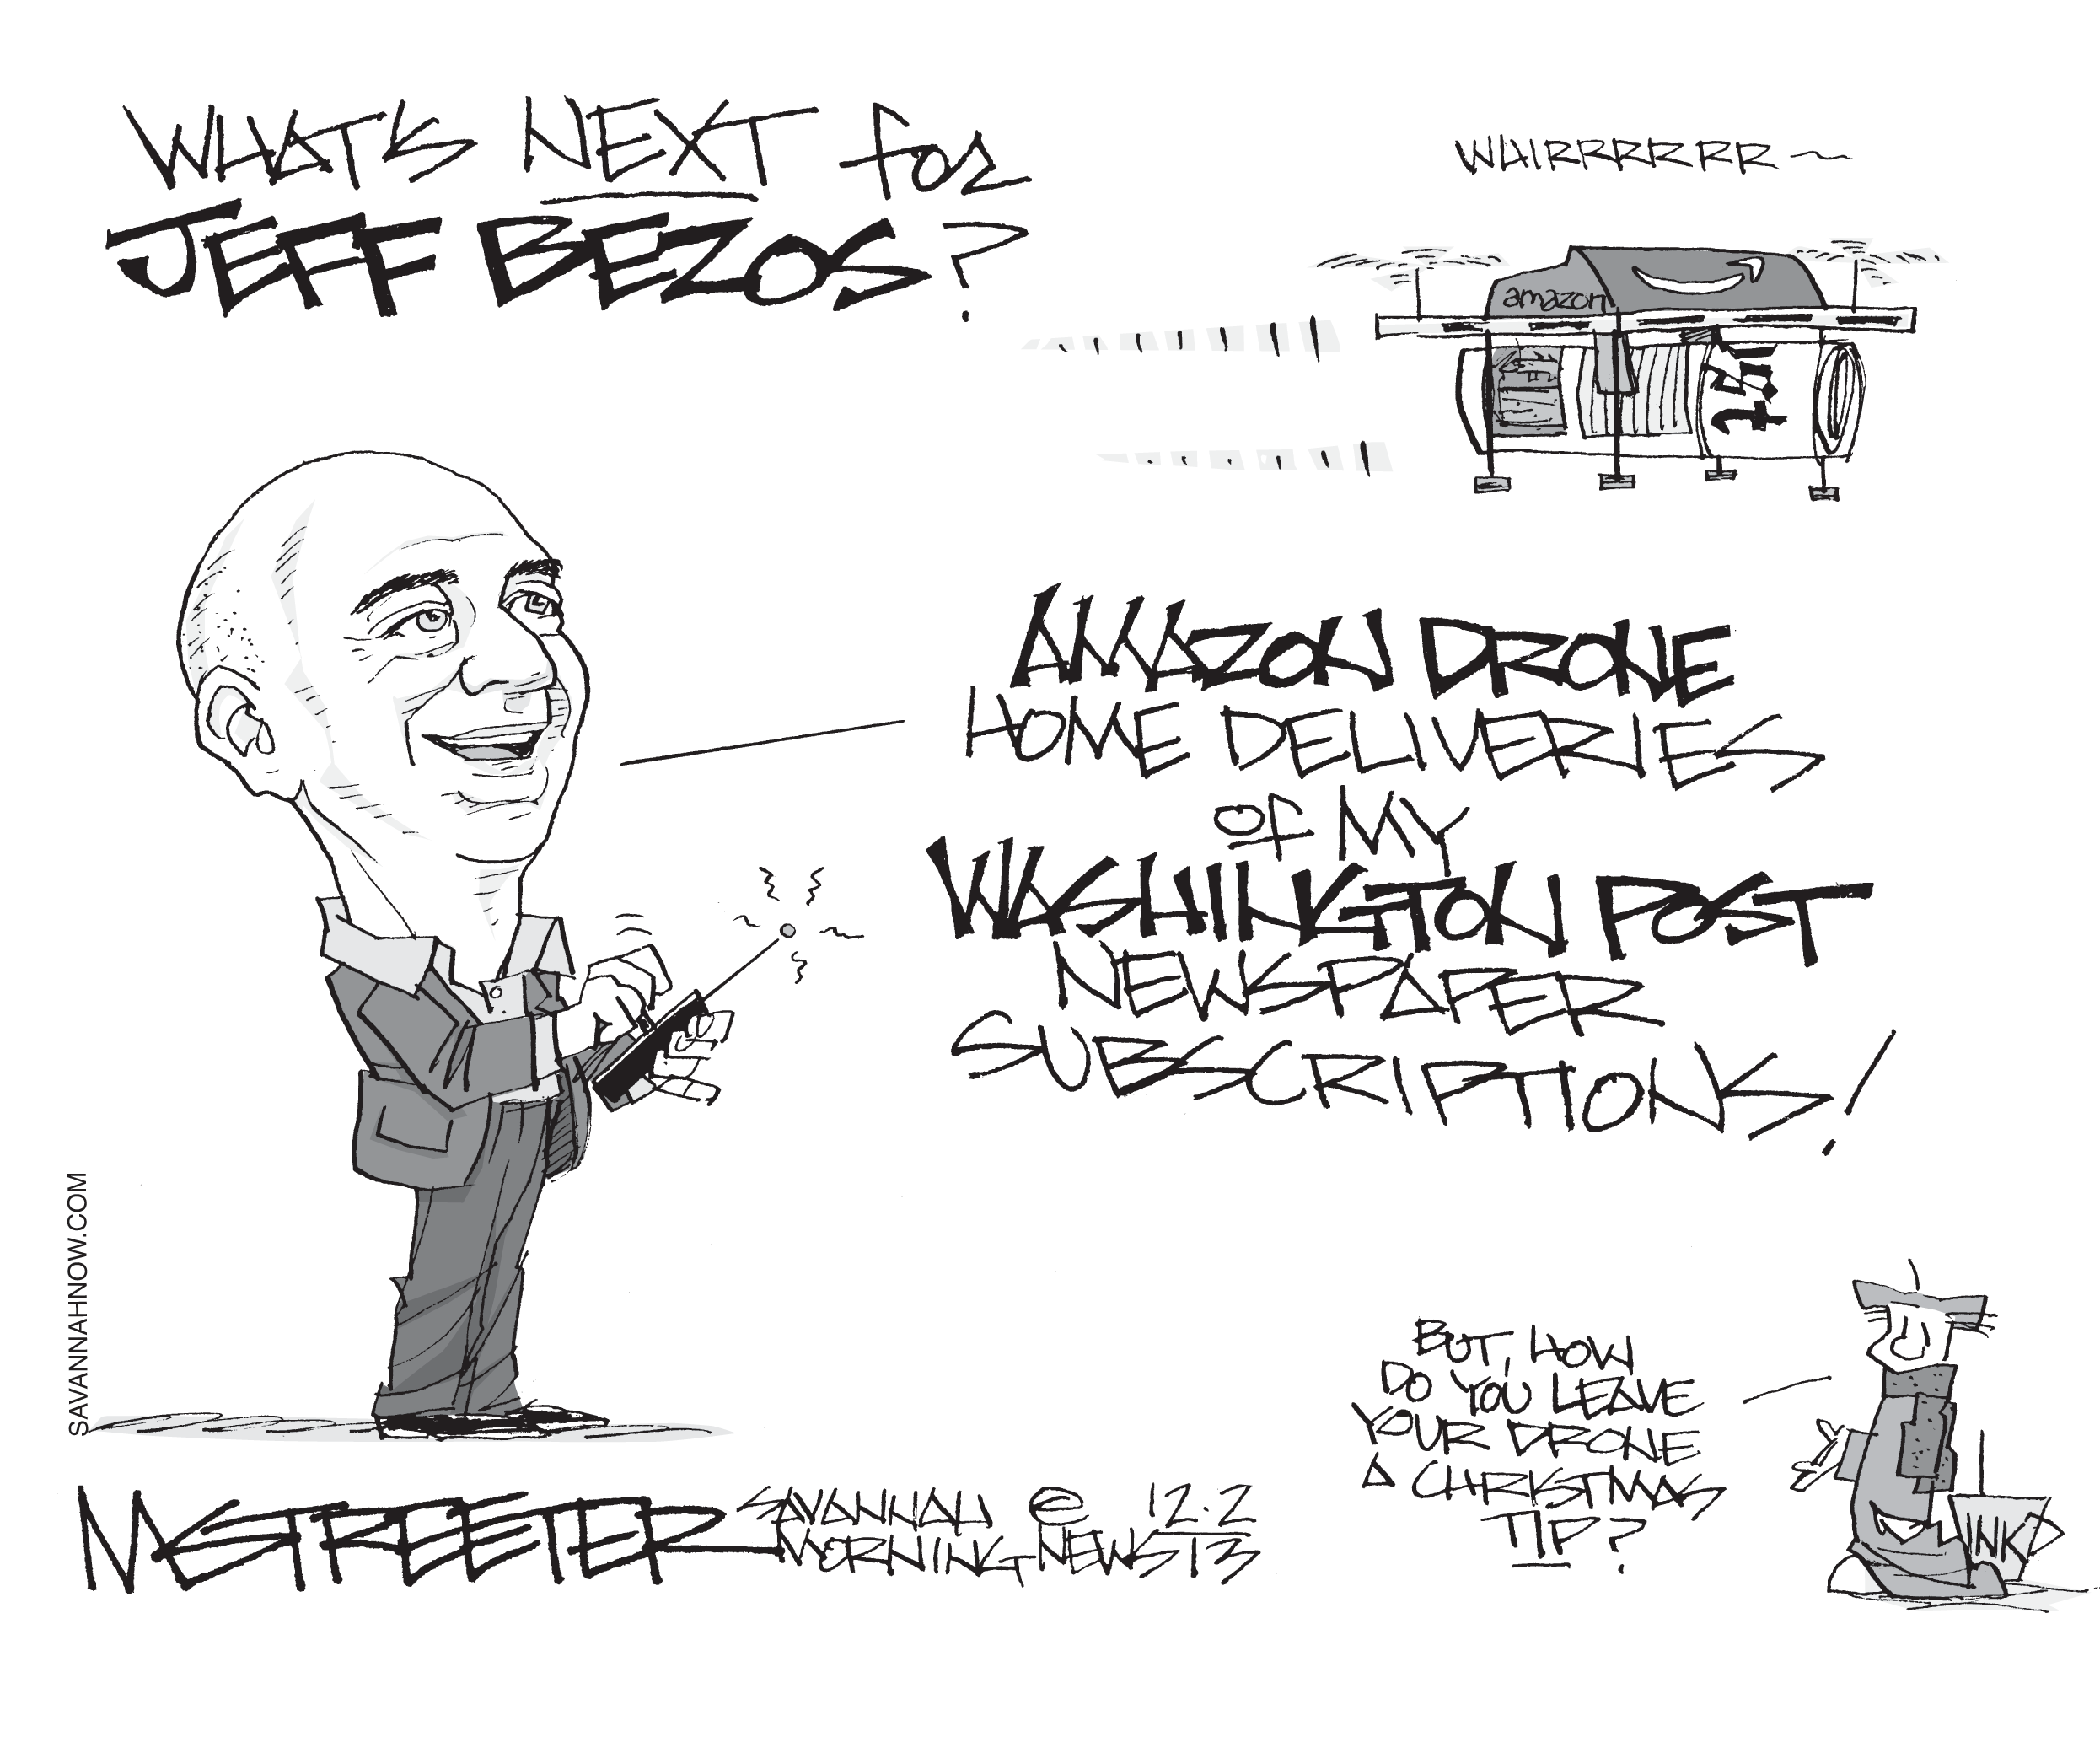 WHAT'S NEXT for
JEFF BEZOS?
WHIRRRRRRR~
amazon
AMAZON DRONE
HOME DELIVERIES
of MY
WASHINGTON POST
NEWSPAPER
SUBSCRIPTIONS!
BUT, HOW
DO YOU LEAVE
YOUR DRONE
A CHRISTMAS
TIP?
INK
SAVANNAHNOW.COM
M STREETER
SAVANNAH
MORNING NEWS
©
12.2
13